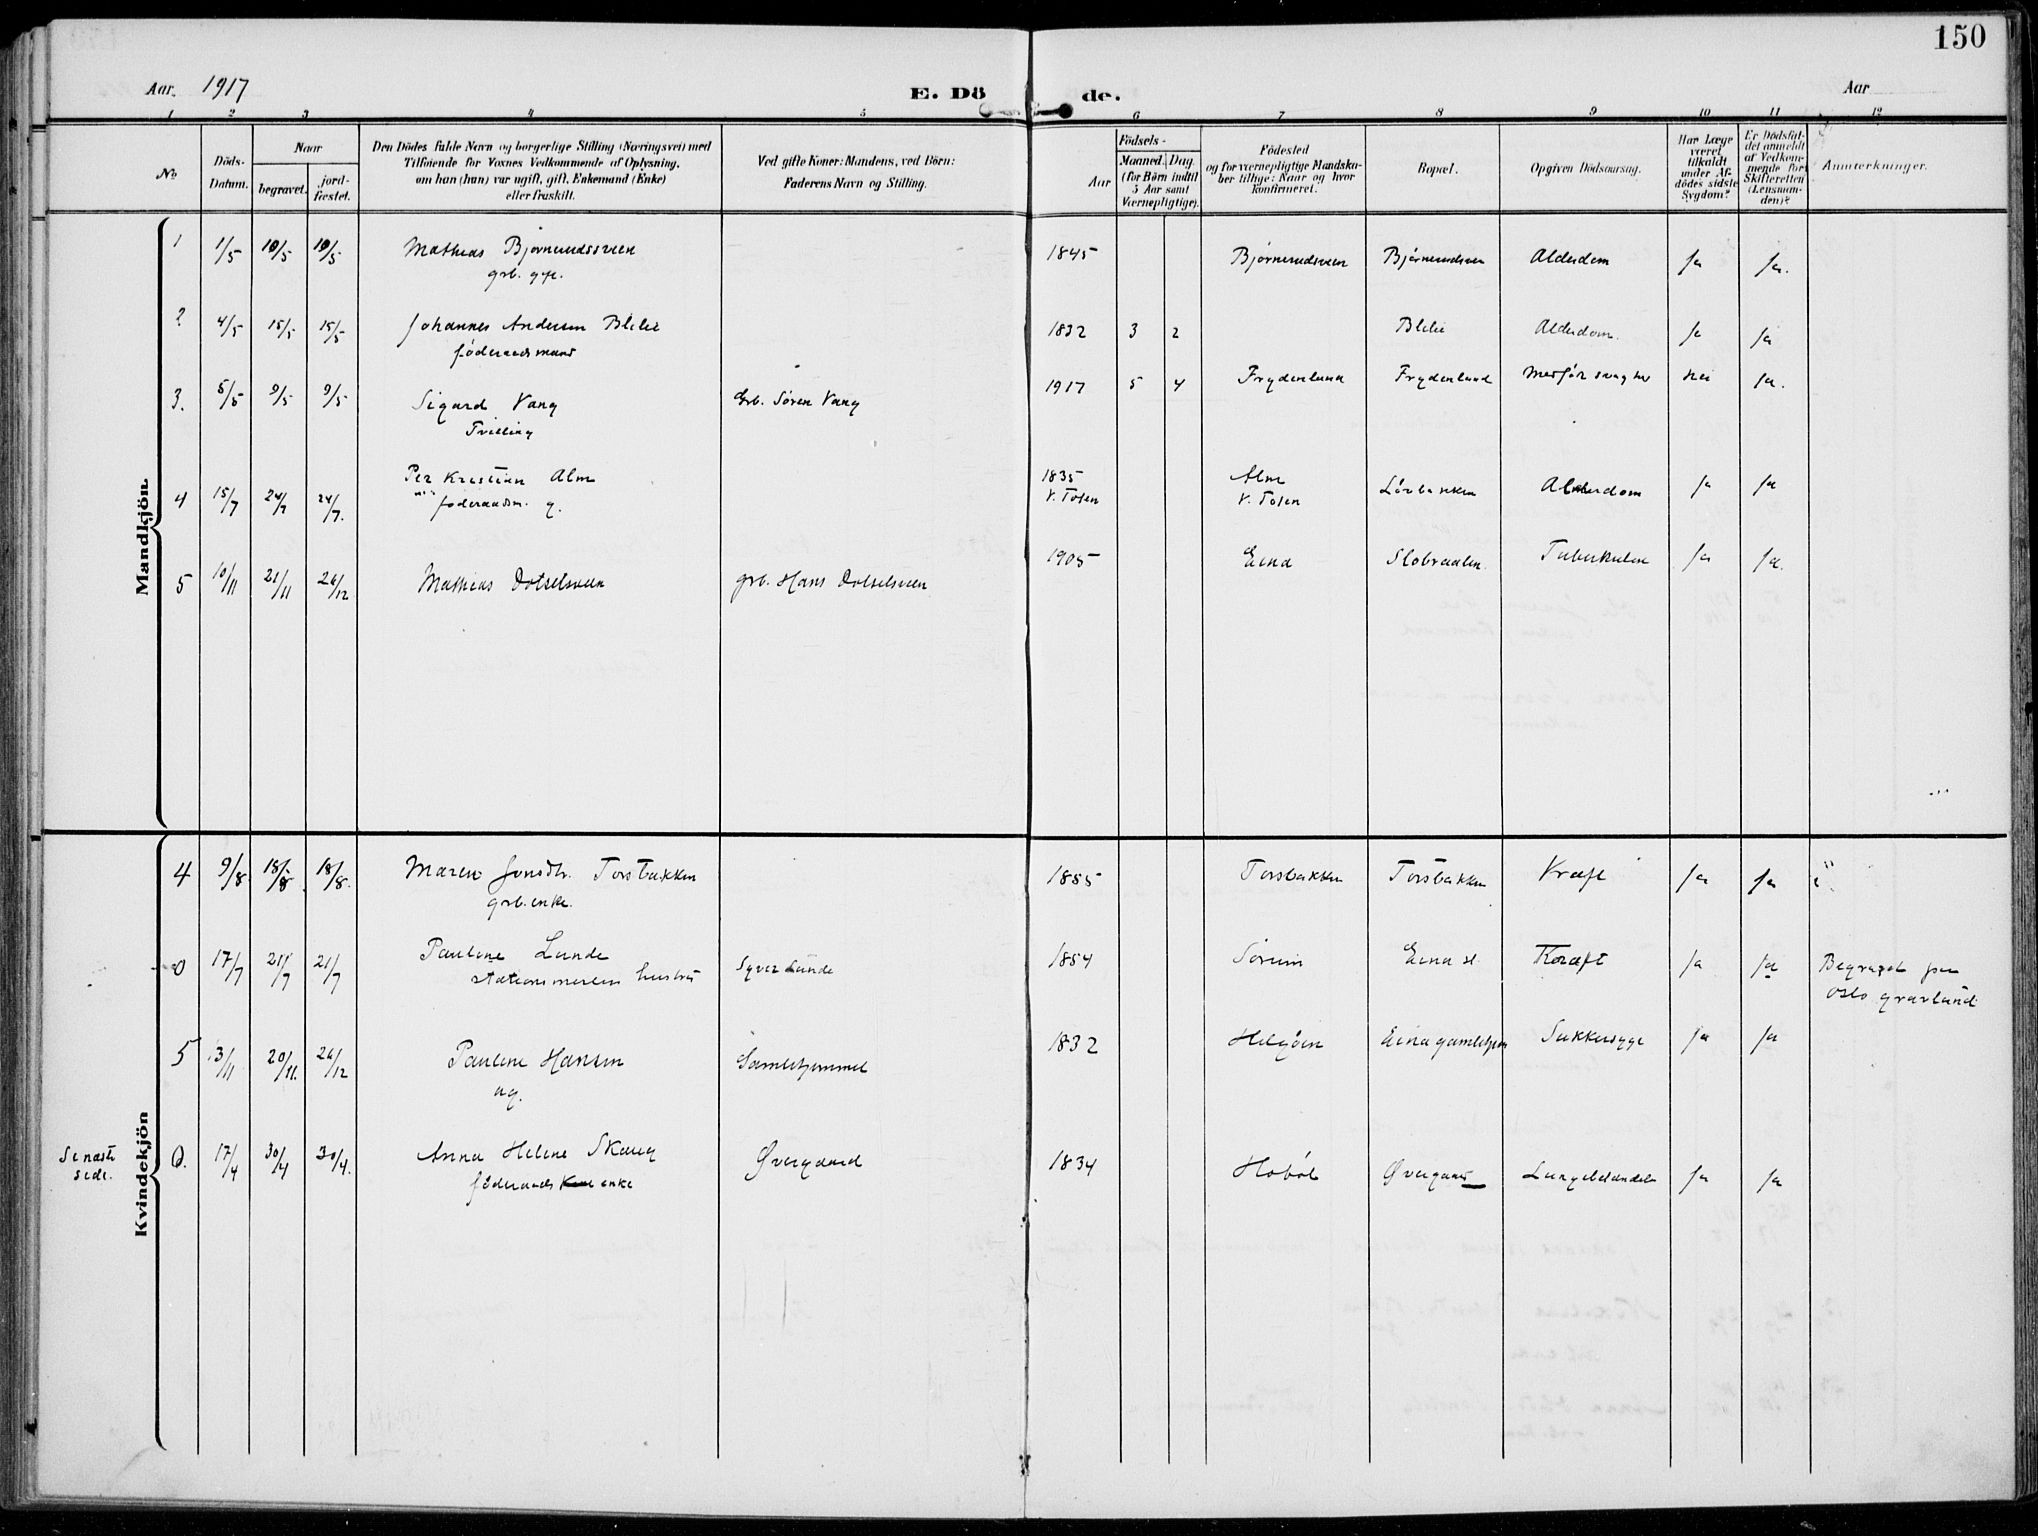 150
Aar. 1917
E. Dö de.
Aar
1 2 3 4 5 6 7 8 9 10 11 12
No
Döds-Datum.
Naar
begravet.
jord-fæstet.
Den Dödes fulde Navn og borgerlige Stilling (Næringsvei) med
Tilföiende for Voxnes Vedkommende af Oplysning,
om han (hun) var ugift, gift, Enkemand (Enke)
eller fraskilt.
Ved gifte Koner: Mandens, ved Börn:
Faderens Navn og Stilling.
Födsels-
Aar
Maaned. Dag.
(for Börn indtil
5 Aar samt
Værnepligtige).
Födested
og for værnepligtige Mandska-
ber tillige: Naar og hvor
konfirmeret.
Bopæl.
Opgiven Dödsaarsag.
Har Læge
været
tilkaldt
under Af-
dödes sidste
Sygdom?
Er Dödsfal-
det anmeldt
af Vedkom-
mende for
Skifteretten
(Lensman-
den)?
Anmærkninger.
Mandkjön.
1 1/5 10/5 10/5 Mathias Bjørnerudsveen 1845 Bjørnerudsveen Bjørnerudsveen Alderdom Ja Ja.
grb. gift.
2 4/5 15/5 15/5 Johannes Andersen Blilie 1832 3 2 Blilie Alderdom. Ja Ja
føderaadsmand
3. 5/5 9/5 9/5 Sigurd Vang Grb. Søren Vang 1917 5 4 Frydenlund Frydenlund Medfør svaghet Nei Ja.
Tvilling
4 15/7 24/7 24/7. Per Kristian Alm 1835 Alm Løvbakken Alderdom Ja Ja
føderaadsm. g. V. Toten V. Toten
5 10/11 21/11 26/12 Mathias Dotselsveen grb. Hans Dotselsveen 1905 Eina Tuberkulose Ja Ja.
Kvindekjön
4 9/8. 18/8. 18/8. Maren Jonsdtr. Torsbakken 1855 Torsbakken Torsbakken Kræft Ja Ja
grb. enke.
0 17/7 21/7 21/7 Pauline Lunde Syver Lunde 1854 Sørum Eina st. Kræft Ja Ja Begravet paa
stationsmesters hustru Oslo gravlund
5 13/11 20/11. 26/12 Pauline Hansen Gamlehjemmet 1832 Helgøen Eina gamlehjem Sukkersyge Ja Ja
ug.
Se næste
side.
0. 17/4 30/4 30/4. Anna Helene Skaug Øvergaard 1834 Hobøl Øvergaard Lungebetændelse Ja Ja
føderaads enke